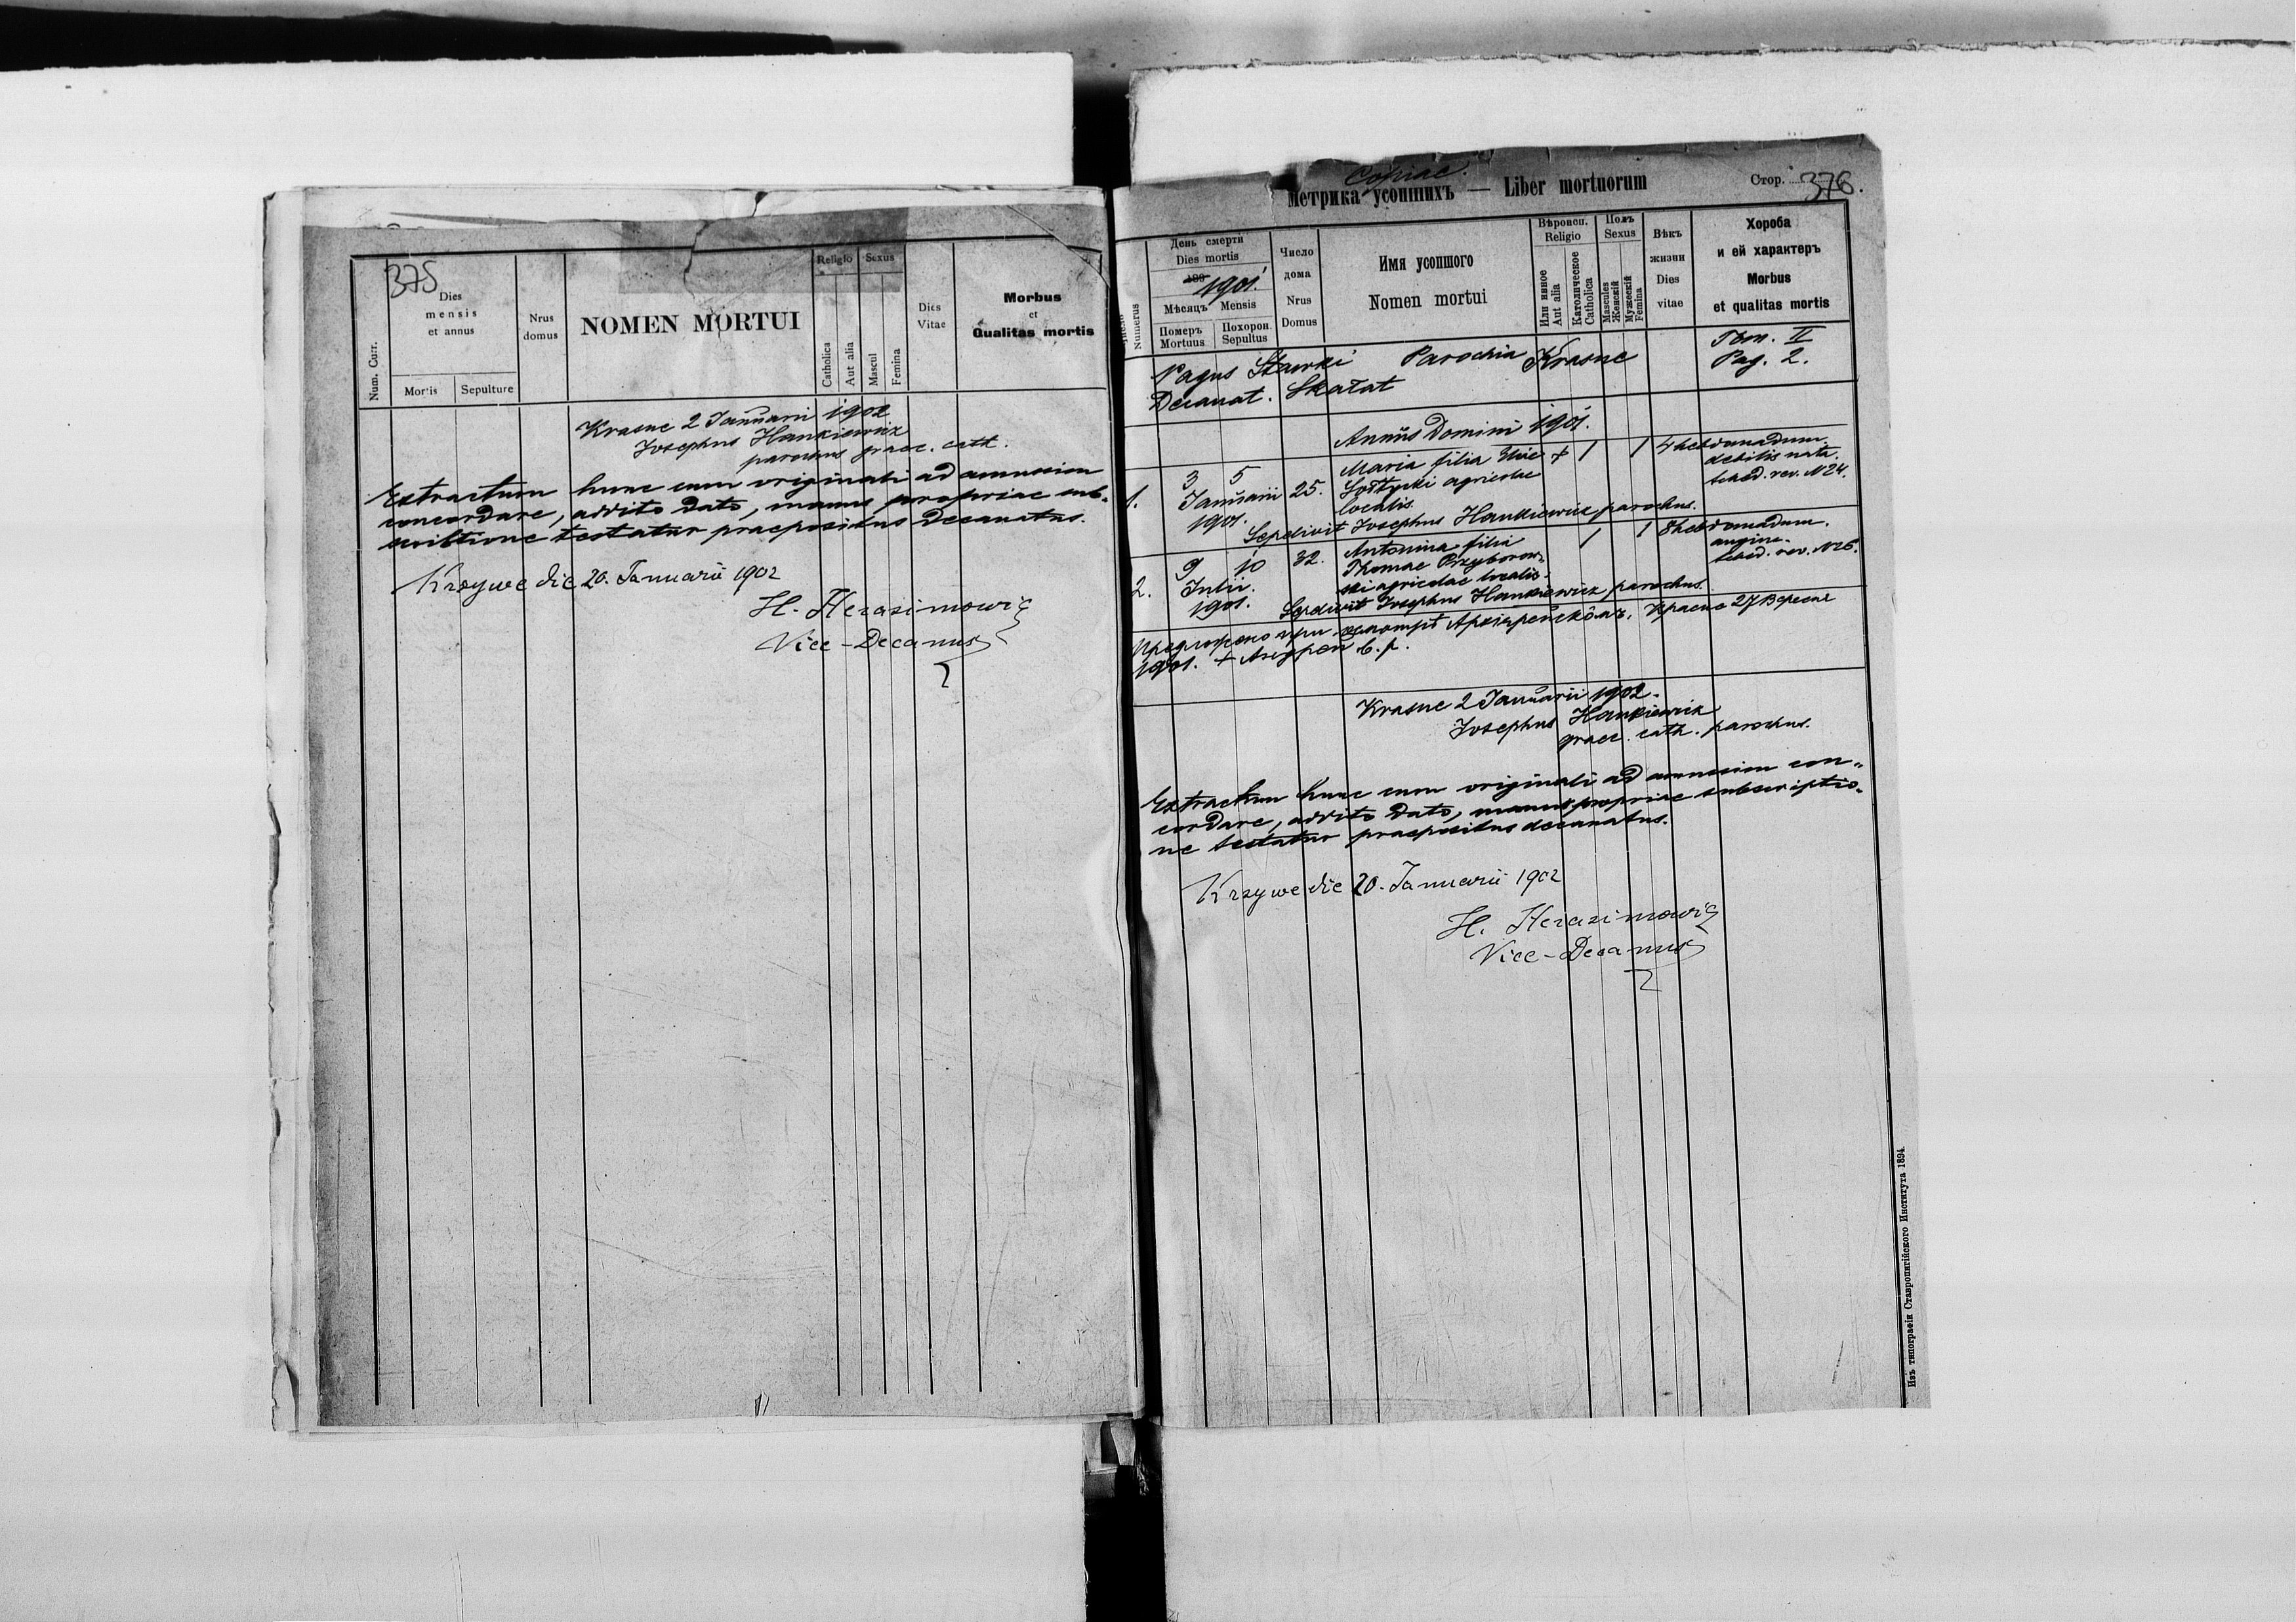 375
Num. Curr.
Dies
mensis
et annus
Mortis
Sepulture
Nrus
domus
NOMEN MORTUI
Religio
Sexus
Catholica
Aut alia
Mascul
Femina
Dies
Vitae
Morbus
et
Qualitas mortis
Krasne 2 Januarii 1902
Josephus Hankiewicz
parochus graec. cath.
Extractum hunc cum originali ad amussim
concordare, addito dato, manus propriae sub-
scribtione testatur praepositus decanatus.
Krzywe die 20. Januarii 1902
H. Herasimowicz
Vice-Decanus
Copiae.
Метрика усопшихъ — Liber mortuorum
Стор. 376.
Numerus
День смерти
Dies mortis
189 1901.
Мѣсяцъ Mensis
Померъ
Mortuus
Похорон.
Sepultus
Число
дома
Nrus
Domus
Имя усопшого
Nomen mortui
Вѣроисп.
Religio
Или иное
Aut alia
Католическое
Catholica
Полъ
Sexus
Mascules
Женскій
Мужескій
Femina
Вѣкъ
жизни
Dies
vitae
Хороба
и ей характеръ
Morbus
et qualitas mortis
Pagus Stawki Parochia Krasne
Decanat. Skałat
Tom. II
Pag. 2.
Annus Domini 1901.
1. 3 5 Januarii 1901. 25. Maria filia Eliae + 1 1 4 hebdomadum.
agricolae debilis nata.
localis. sched. rev. N 24.
Sepelivit Josephus Hankiewicz parochus.
2. 9 10 Julii. 1901. 32. Antonina filia 1 1 8 hebdomadum.
Thomae Przyborow- angina.
ski agricolae localis. sched. rev. N 26.
Sepelivit Josephus Hankiewicz parochus.
Предложено при Архіерейскôмъ. Красне 27 Вересня
1901. +
Krasne 2 Januarii 1902.
Josephus Hankiewicz
graec. cath. parochus.
Extractum hunc cum originali ad amussim con-
cordare, addito dato, manus propriae subscriptio-
ne testatur praepositus decanatus.
Krzywe die 20. Januarii 1902
H. Herasimowicz
Vice-Decanus
Изъ типографіи Ставропигійского Института 1894.